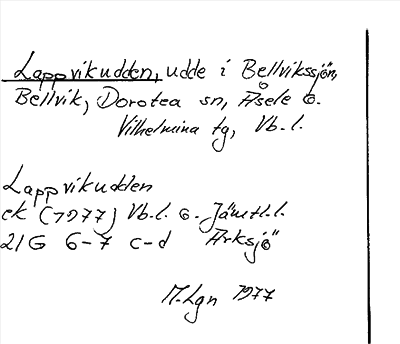 Lappvikudden, udde i Bellvikssjön,
Bellvik, Dorotea sn, Åsele o.
Vilhelmina tg, Vb.l.
Lappvikudden
ek (1977) Vb.l. o. Jämtl.l.
21G 6-7 c-d Arksjö
M.Lgn 1977